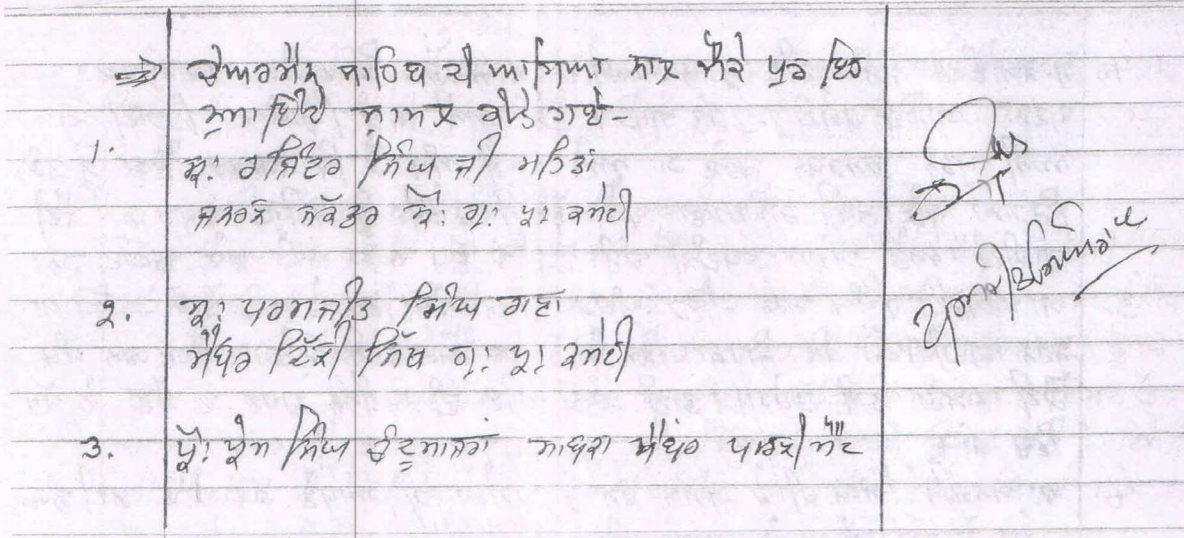 ⇒ ਚੇਅਰਮੈਨ ਸਾਹਿਬ ਦੀ ਆਗਿਆ ਨਾਲ ਮੌਕੇ ਪੁਰ ਇਹ
ਆਈਟਮ ਸ਼ਾਮਲ ਕੀਤੇ ਗਏ-
1. ਸ੍ਰ: ਰਜਿੰਦਰ ਸਿੰਘ ਜੀ ਮਹਿਤਾ
ਜਨਰਲ ਸਕੱਤਰ ਸ਼੍ਰੋ: ਗੁ: ਪ੍ਰ: ਕਮੇਟੀ
2. ਸ੍ਰ: ਪਰਮਜੀਤ ਸਿੰਘ
ਮੈਂਬਰ ਸਿੱਖ ਗੁ: ਪ੍ਰ: ਕਮੇਟੀ
3. ਪ੍ਰੋ: ਪ੍ਰੇਮ ਸਿੰਘ ਚੰਦੂਮਾਜਰਾ ਸਾਬਕਾ ਮੈਂਬਰ ਪਾਰਲੀਮੈਂਟ